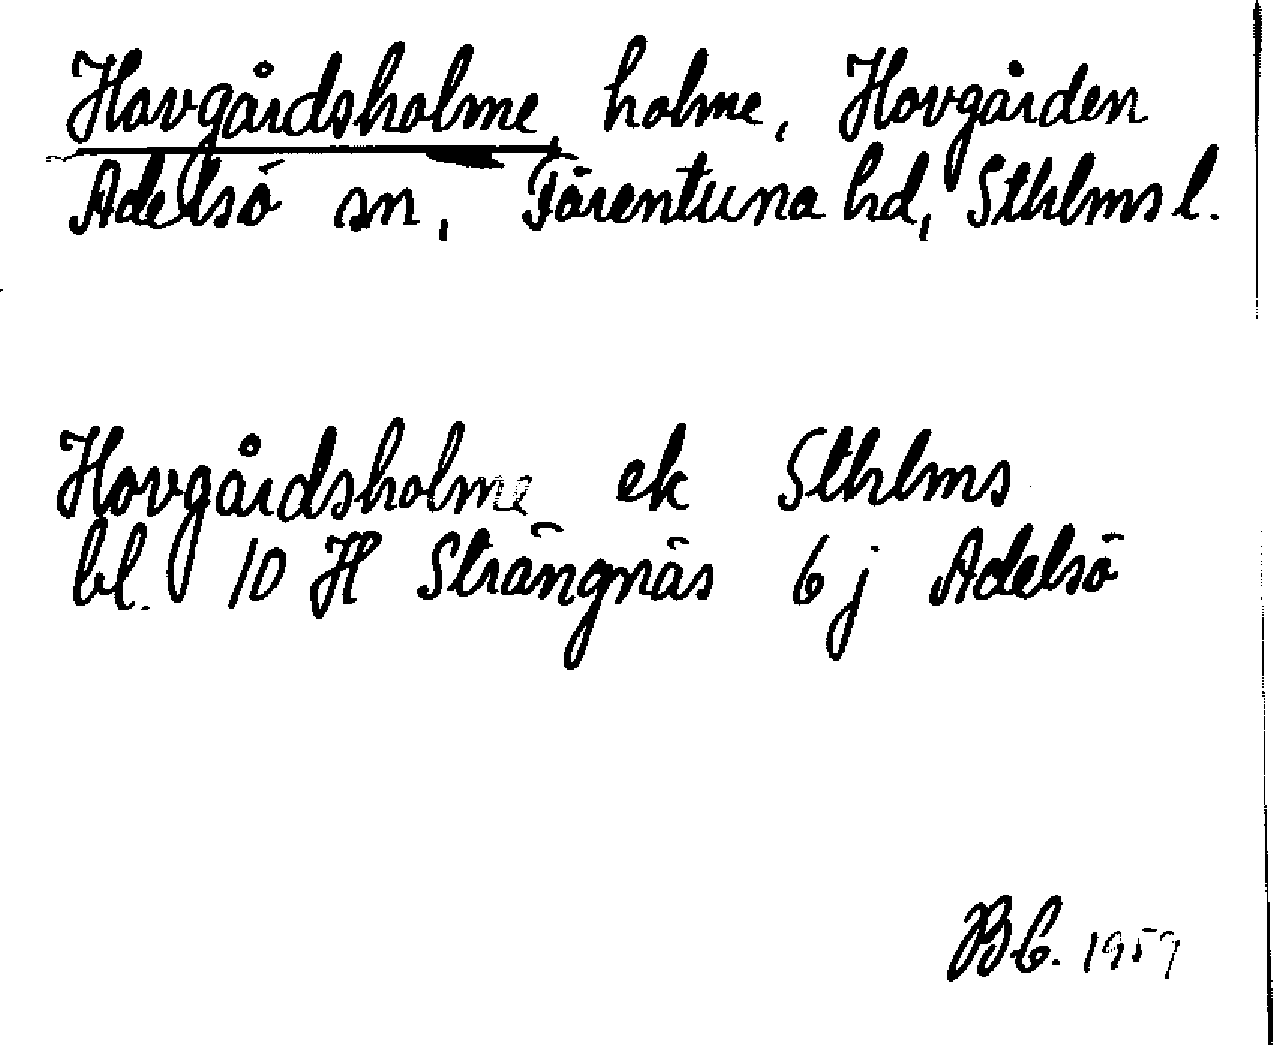 Hovgårdsholme, holme, Hovgården
Adelsö sn, Färentuna hd, Sthlms l.
Hovgårdsholme ek Sthlms
bl. 10 H Strängnäs 6 j Adelsö
B.C. 1959